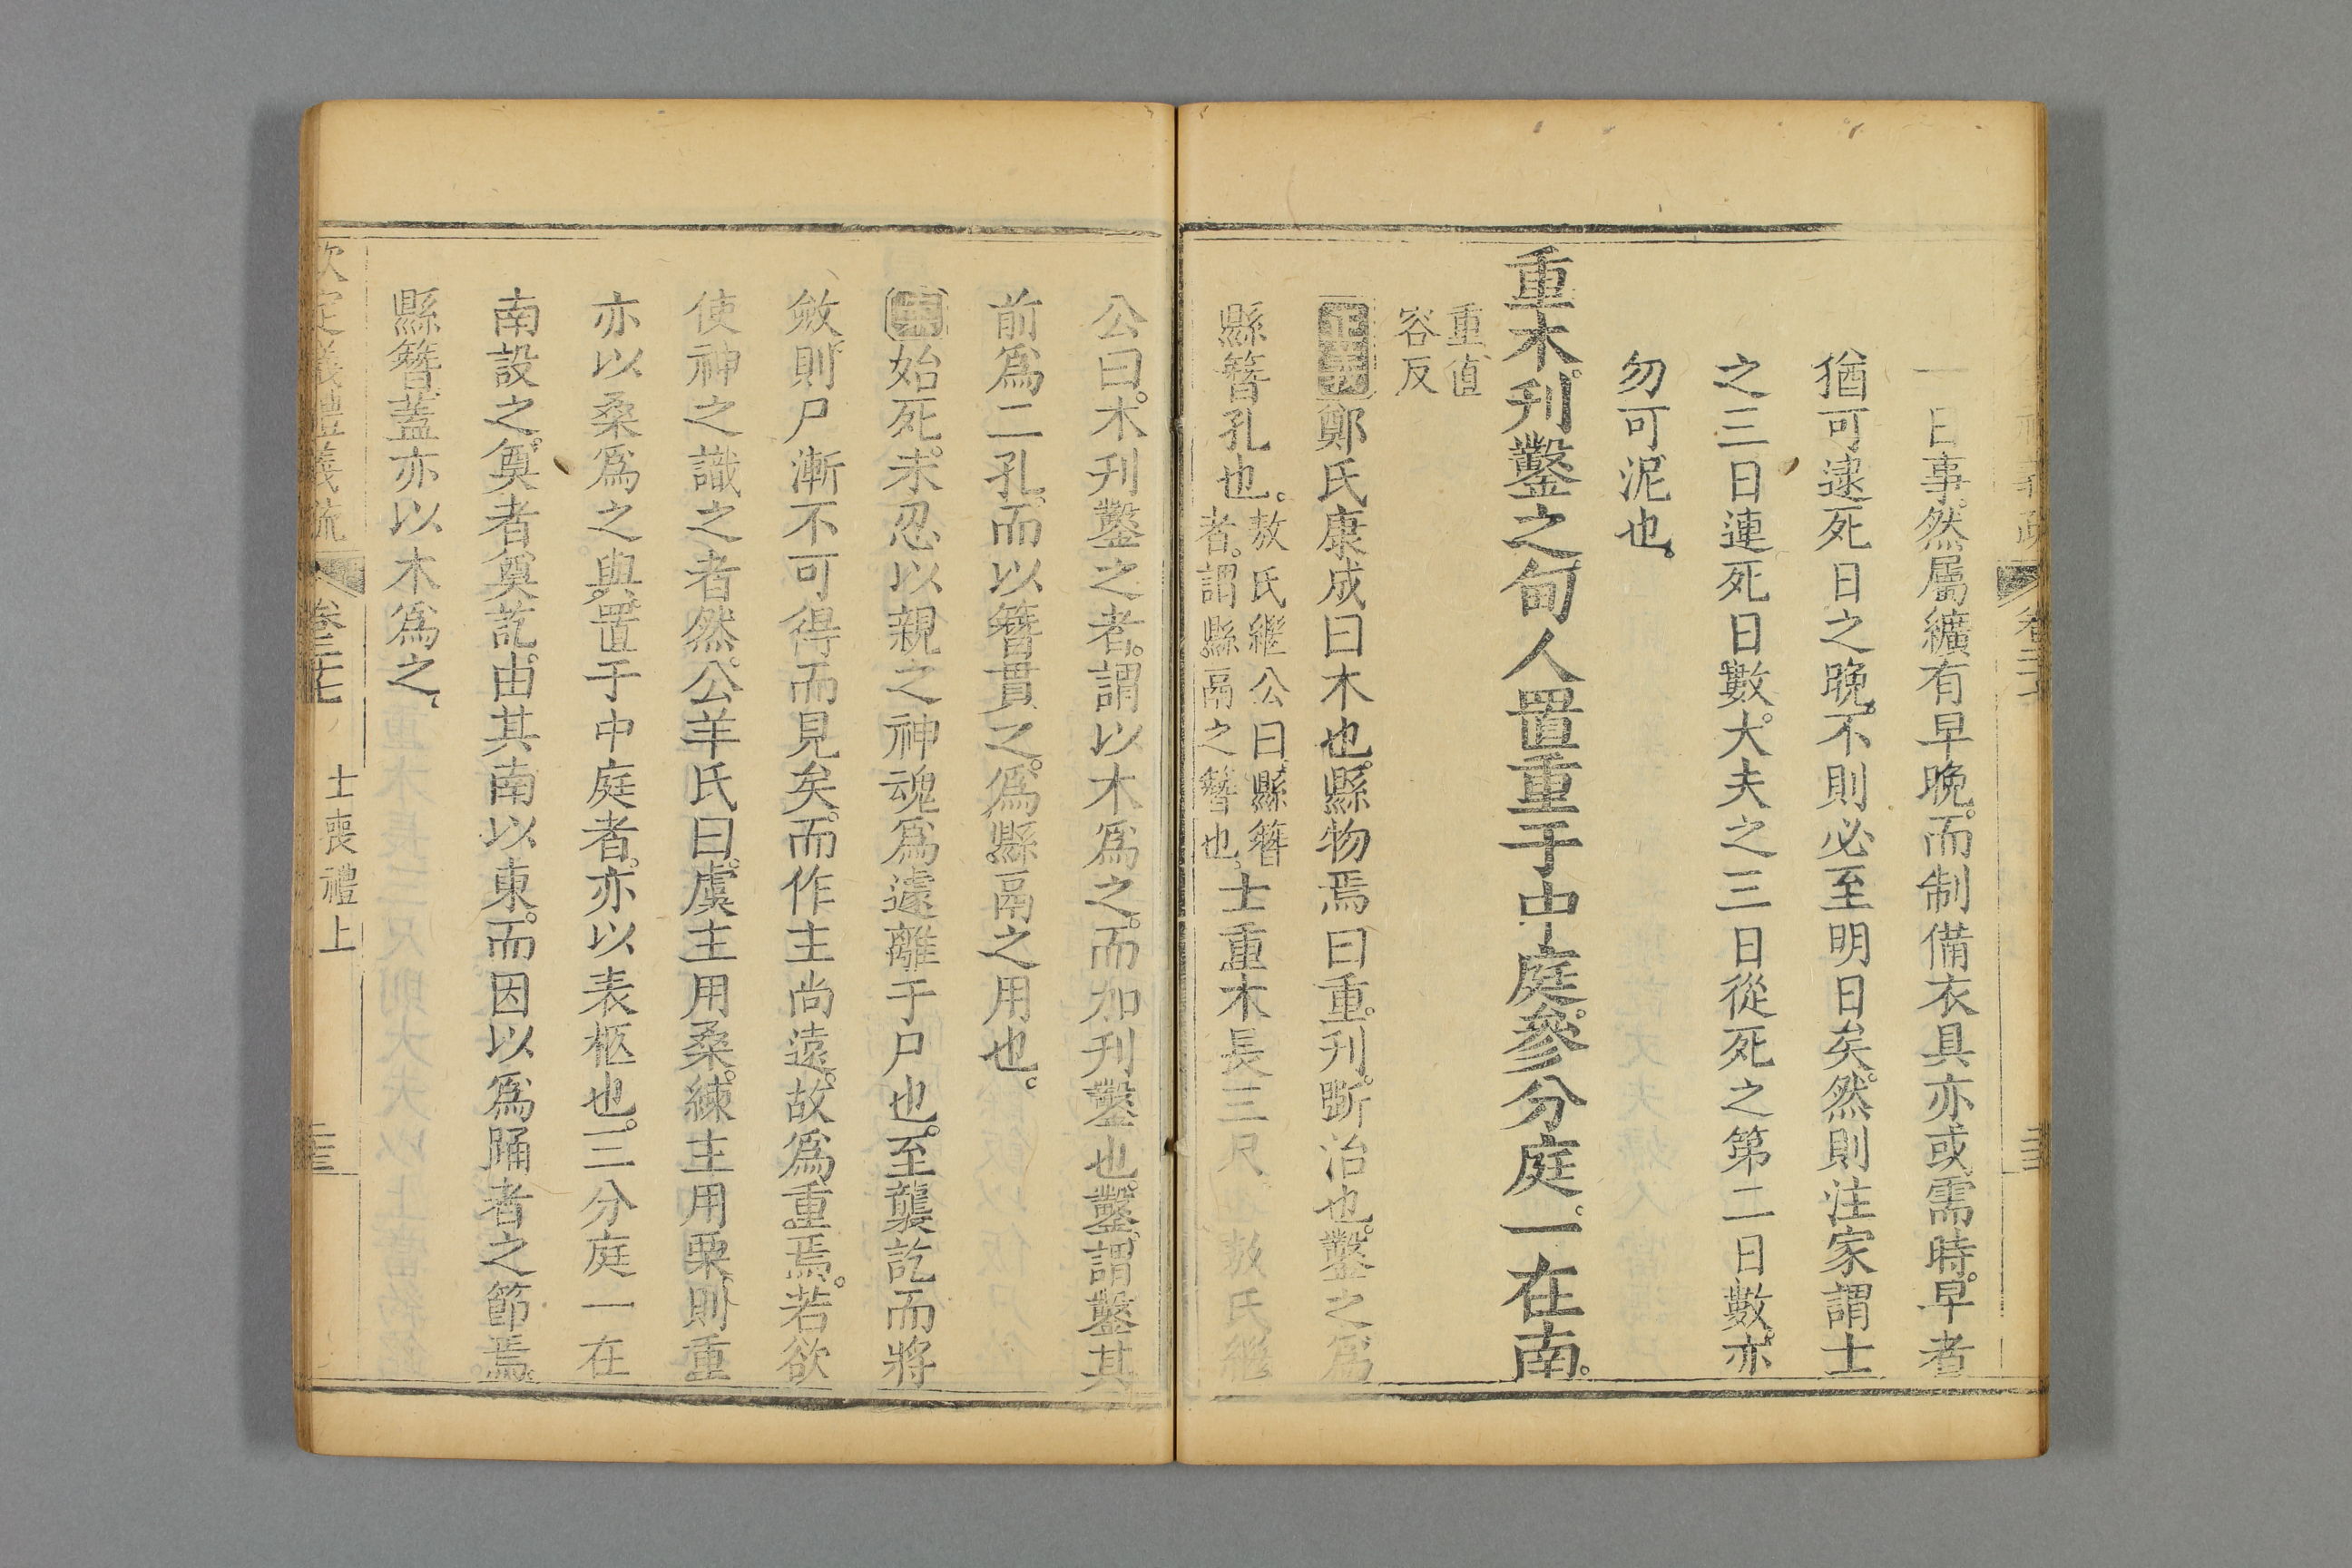 一日事。然屬纊有早晚。而制備衣具亦或需時。早者
猶可逮死日之晚。不則必至明日矣。然則注家謂士
之三日連死日數。大夫之三日從死之第二日數。亦
勿可泥也。
重木。刊鑿之。甸人置重于中庭。參分庭。一在南。
重直
容反
鄭氏康成曰木也。縣物焉曰重。刊。斲治也。鑿之爲
縣簪孔也。
敖氏繼公曰。縣簪
者。謂縣鬲之簪也。
士重木長三尺。
敖氏繼
公曰。木刊鑿之者。謂以木爲之。而加刊鑿也。鑿。謂鑿其
前爲二孔。而以簪貫之。爲縣鬲之用也。
始死。未忍以親之神魂爲遽離于尸也。至襲訖而將
斂。則尸漸不可得而見矣。而作主尚遠。故爲重焉。若欲
使神之識之者然。公羊氏曰。虞主用桑。練主用栗。則重
亦以桑爲之與。置于中庭者。亦以表柩也。三分庭一在
南設之。奠者奠訖。由其南以東。而因以爲踊者之節焉。
縣簪。蓋亦以木爲之。
欽定義禮義疏
卷三十七
士喪禮上